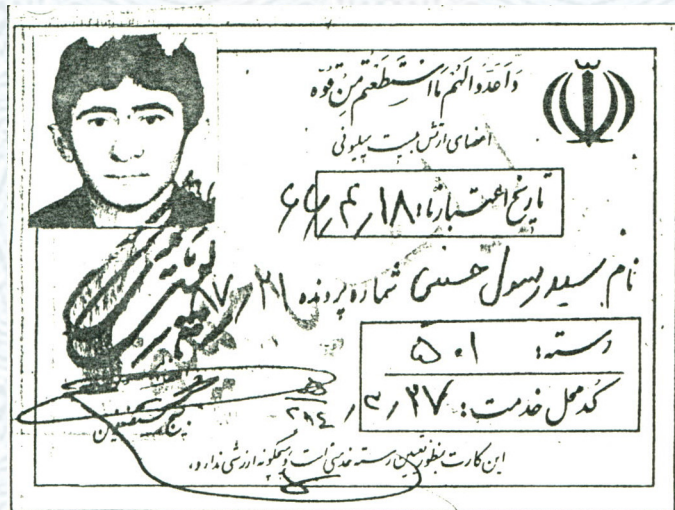 وَاَعِدّوا لَهُم مَا اسْتَطَعْتُم مِن قُوَّه
اعضای ارتش بیست میلیونی
تاریخ اعتبار تا: ۱۸/۴/
نام سید رسول حسنی شماره پرونده
دسته: ۵۰۱
کد محل خدمت: ۳/۲۷
بسیج مستضعفین
این کارت بمنظور تعیین رسته خدمتی است و هیچگونه ارزشی ندارد،